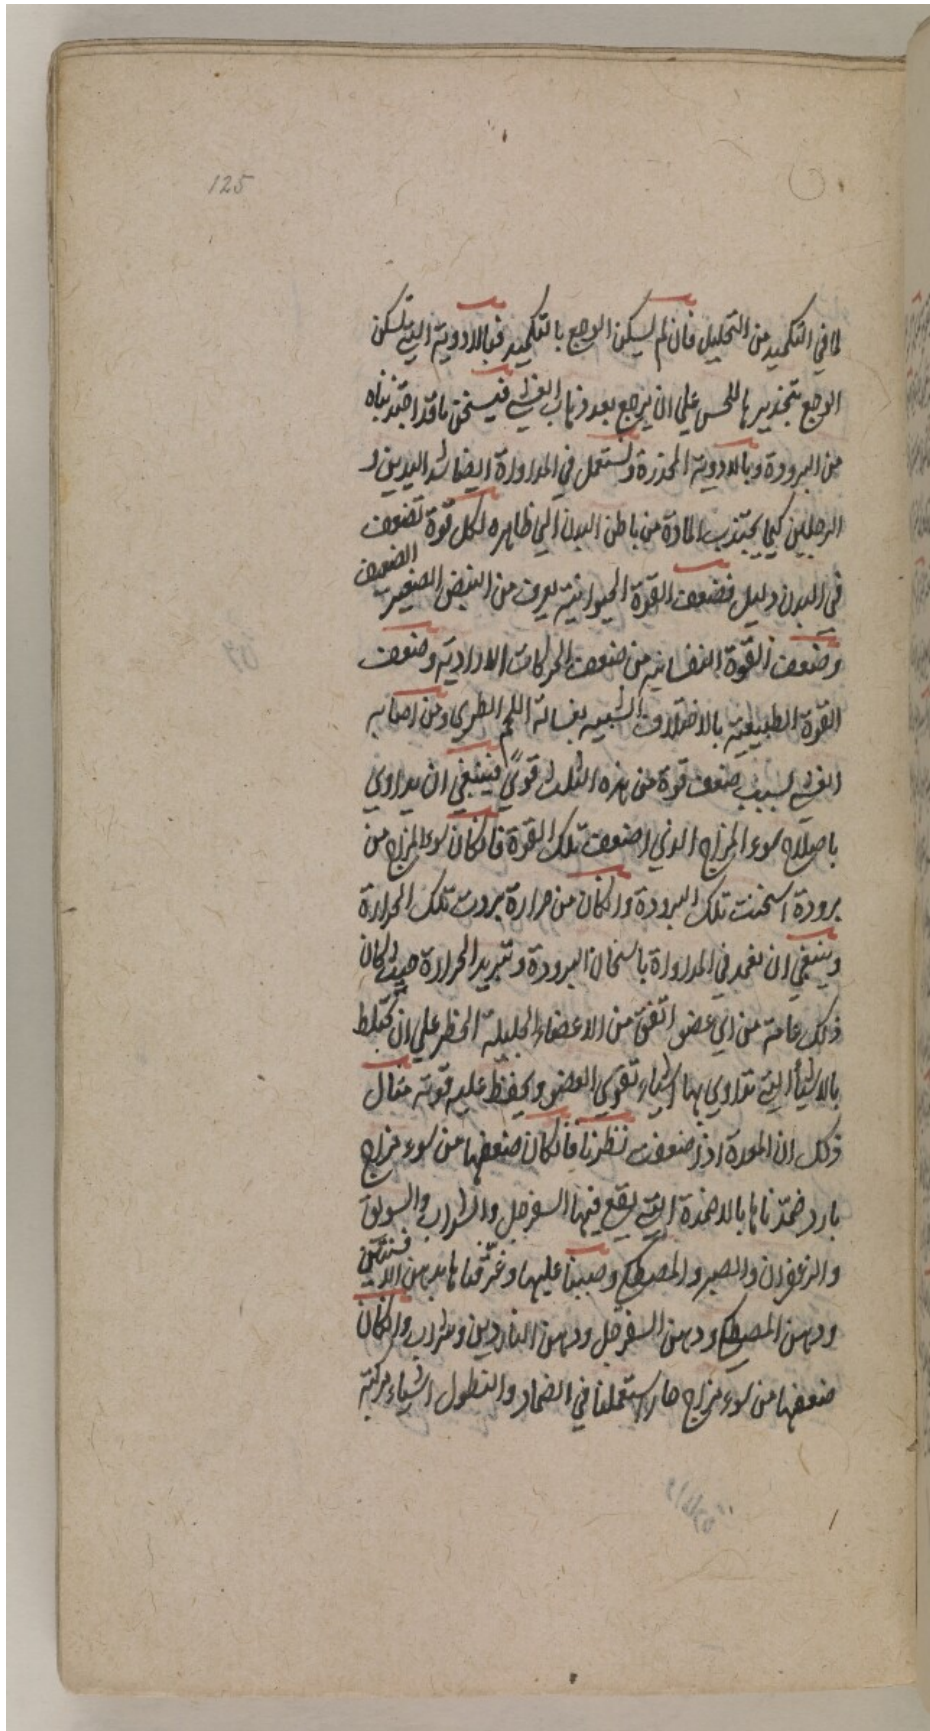 125
لما في التكميد من التحليل فان لم يسكن الوجع بالتكميد فبالادوية التي تسكن
الوجع بتخديرها للحس علي ان يرجع بعد ذهاب الغشي فيسخن ما قد اجتذبناه
من البرودة وبالادوية المخدرة ولستعمل في المداواة ايضا شد اليدين و
الرجلين كيما يجتذب المادة من باطن البدن الي ظاهره لكل قوة تضعف
في البدن دليل فضعف القوة الحيوانية يعرف من النبض الصغير الضعيف
وضعف القوة النفسانية من ضعف الحركات الارادية وضعف
القوة الطبيعية بالاختلاف الشبيه بغسالة اللحم الطري ومن اصابه
الغشي لسبب ضعف قوة من هذه الثلث قوي فينبغي ان يداوي
باصلاح سوء المزاج الذي اضعف تلك القوة فان كان سوء المزاج من
برودة اسخنت تلك البرودة وان كان من حرارة بردت تلك الحرارة
وينبغي ان نعمد في المداواة باسخان البرودة وتبريد الحرارة حيث كان
ذلك عامة من اي عضو اتفق من الاعضاء الجليلة الخطر علي ان تخلط
بالاشياء التي تداوي بها اشياء تقوي العضو ويحفظ عليه قوته مثال
ذلك ان المعدة اذا ضعفت نظرنا فان كان ضعفها من سوء مزاج
بارد ضمدناها بالاضمدة التي يقع فيها السفرجل والشراب والسويق
والزعفران والصبر والمصطكي وصببنا عليها وغرقناها بدهن الافسنتين
ودهن المصطكي ودهن السفرجل ودهن الناردين وشراب وان كان
ضعفها من سوء مزاج حار استعملنا في الضماد والنطول اشياء مركبة